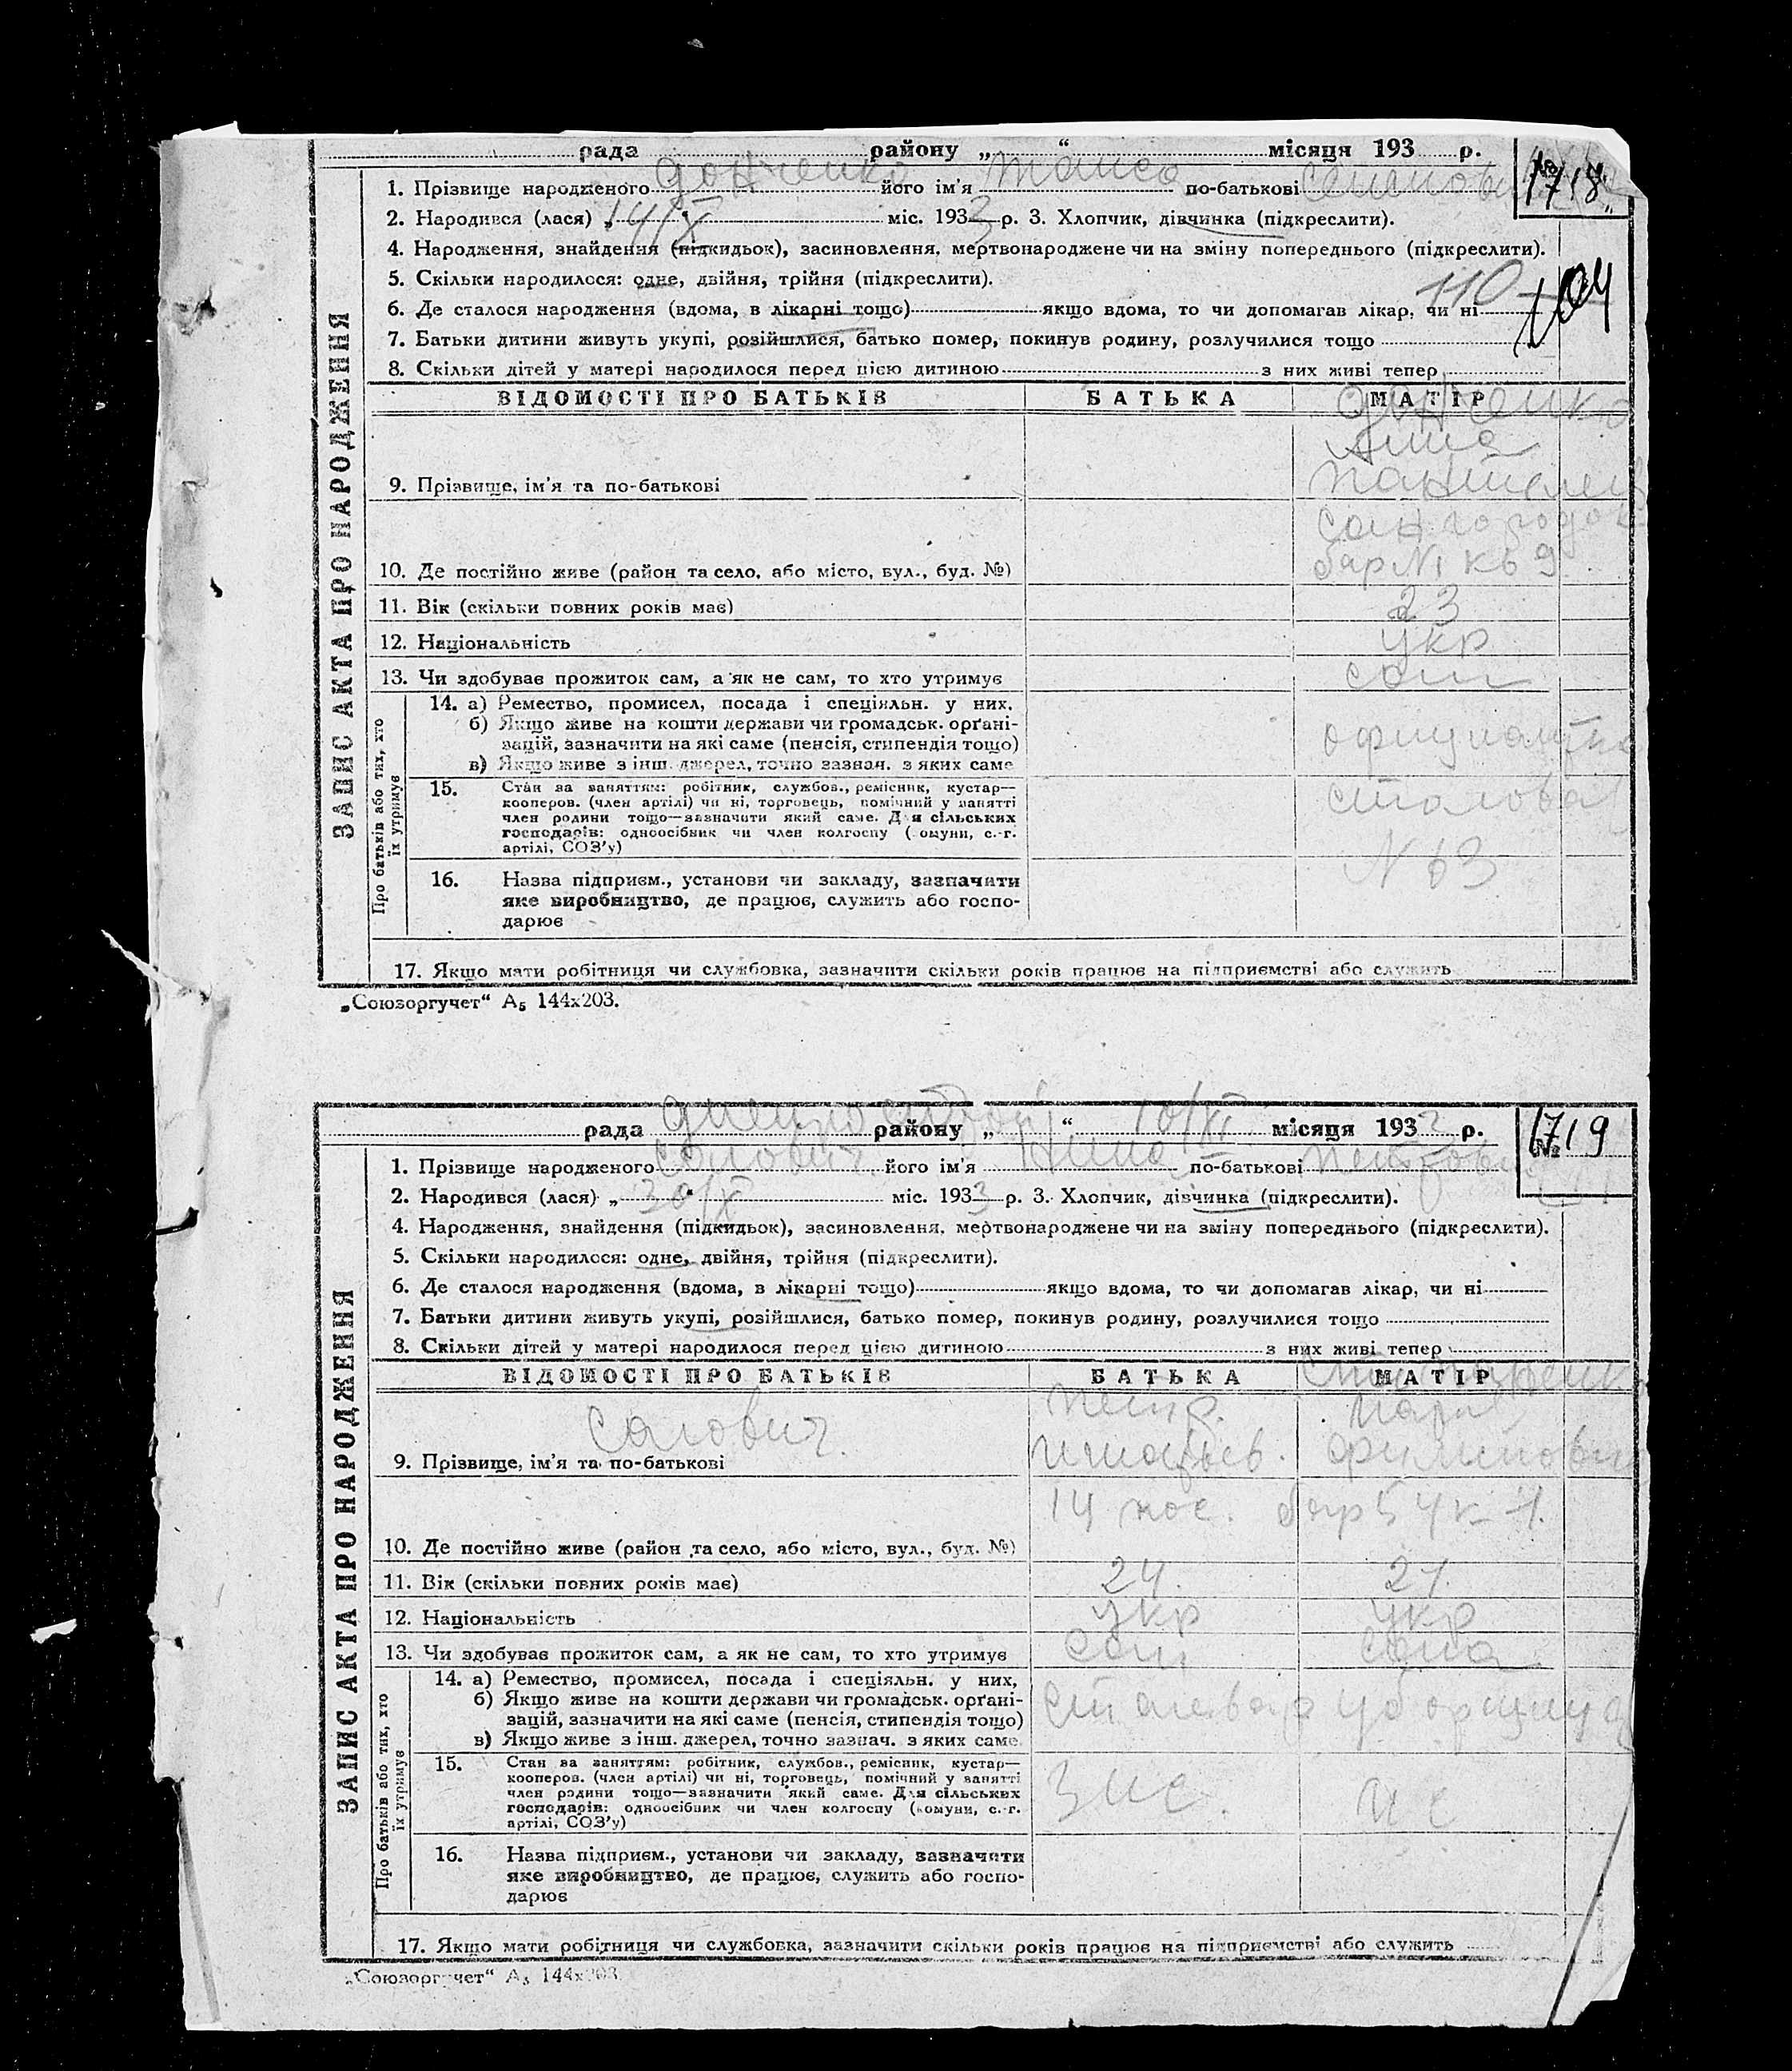 рада району „ “ місяця 193 р.
№ 1718
1. Прізвище народженого Донченко його ім'я Таиса по-батькові Семенов
2. Народився (лася) „14/X“ міс. 1933 р. 3. Хлопчик, дівчинка (підкреслити).
4. Народження, знайдення (підкидьок), засиновлення, мертвонароджене чи на зміну попереднього (підкреслити).
5. Скільки народилося: одне, двійня, трійня (підкреслити).
110 104
6. Де сталося народження (вдома, в лікарні тощо) якщо вдома, то чи допомагав лікар, чи ні
7. Батьки дитини живуть укупі, розійшлися, батько помер, покинув родину, розлучилися тощо
8. Скільки дітей у матері народилося перед цією дитиною з них живі тепер
ВІДОМОСТІ ПРО БАТЬКІВ БАТЬКА МАТІР
Донченко
Анна
9. Прізвище, ім'я та по-батькові
Сангородок
10. Де постійно живе (район та село, або місто, вул., буд. №) бар №1 кв 9
11. Вік (скільки повних років має) 23
12. Національність укр
13. Чи здобуває прожиток сам, а як не сам, то хто утримує сам
14. а) Ремество, промисел, посада і спеціяльн. у них.
б) Якщо живе на кошти держави чи громадськ. орґані-
зацій, зазначити на які саме (пенсія, стипендія тощо)
в) Якщо живе з інш. джерел, точно зазнач. з яких саме
официантка
15. Стан за заняттям: робітник, службов., ремісник, кустар—
кооперов. (член артілі) чи ні, торговець, помічний у занятті
член родини тощо—зазначити який саме. Для сільських
господарів: одноосібник чи член колгоспу (комуни, с.-г.
артілі, СОЗ'у)
столова
16. Назва підприєм., установи чи закладу, зазначити
яке виробництво, де працює, служить або госпо-
дарює
N 63
17. Якщо мати робітниця чи службовка, зазначити скільки років працює на підприємстві або служить
ЗАПИС АКТА ПРО НАРОДЖЕННЯ
Про батьків або тих, хто
їх утримує
„Союзоргучет“ А5 144х203.
рада Днепрострой району „ “ 10/XI місяця 193 р.
№ 1719
1. Прізвище народженого Салович його ім'я Нина по-батькові Петров
2. Народився (лася) „30/X“ міс. 1933 р. 3. Хлопчик, дівчинка (підкреслити).
4. Народження, знайдення (підкидьок), засиновлення, мертвонароджене чи на зміну попереднього (підкреслити).
5. Скільки народилося: одне, двійня, трійня (підкреслити).
6. Де сталося народження (вдома, в лікарні тощо) якщо вдома, то чи допомагав лікар, чи ні
7. Батьки дитини живуть укупі, розійшлися, батько помер, покинув родину, розлучилися тощо
8. Скільки дітей у матері народилося перед цією дитиною з них живі тепер
ВІДОМОСТІ ПРО БАТЬКІВ БАТЬКА МАТІР
Салович Петр.
9. Прізвище, ім'я та по-батькові
14 пос. бар 54 к-1.
10. Де постійно живе (район та село, або місто, вул., буд. №)
11. Вік (скільки повних років має) 24. 21.
12. Національність укр укр
13. Чи здобуває прожиток сам, а як не сам, то хто утримує сам сама
14. а) Ремество, промисел, посада і спеціяльн. у них,
б) Якщо живе на кошти держави чи громадськ. орґані-
зацій, зазначити на які саме (пенсія, стипендія тощо)
в) Якщо живе з інш. джерел, точно зазнач. з яких саме
сталевар уборщица
15. Стан за заняттям: робітник, службов., ремісник, кустар—
кооперов. (член артілі) чи ні, торговець, помічний у занятті
член родини тощо—зазначити який саме. Для сільських
господарів: одноосібник чи член колгоспу (комуни, с.-г.
артілі, СОЗ'у)
ЗИС. ИС
16. Назва підприєм., установи чи закладу, зазначити
яке виробництво, де працює, служить або госпо-
дарює
17. Якщо мати робітниця чи службовка, зазначити скільки років працює на підприємстві або служить
ЗАПИС АКТА ПРО НАРОДЖЕННЯ
Про батьків або тих, хто
їх утримує
„Союзоргучет“ А5 144х203